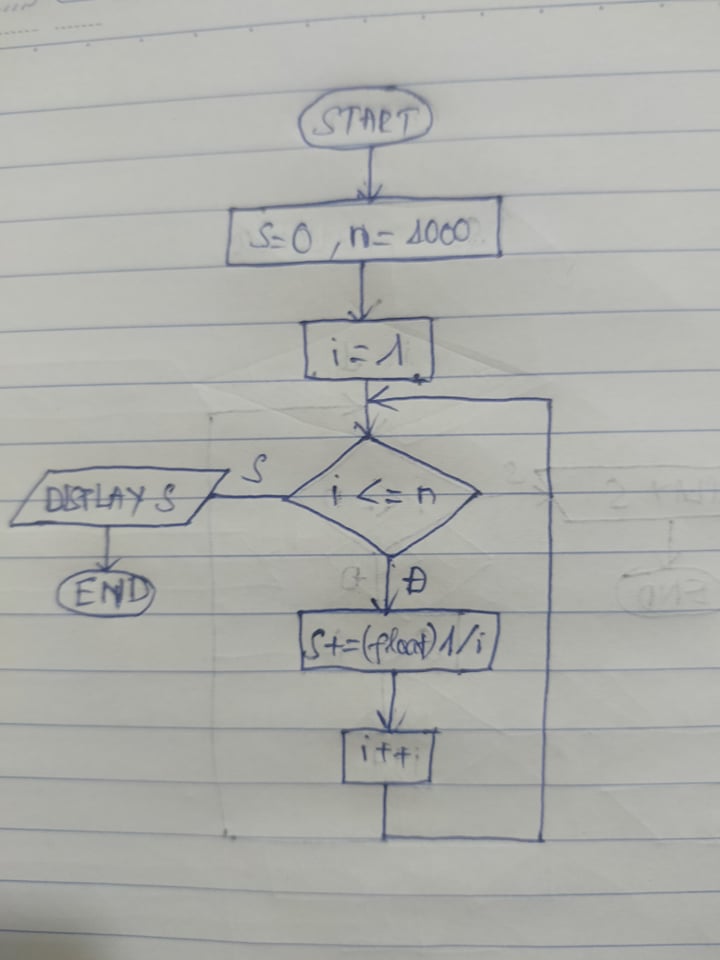 START
S=0 , n= 1000
i = 1
i <= n
S
DISPLAY S
END
Đ
S+=(float)1/i
i++